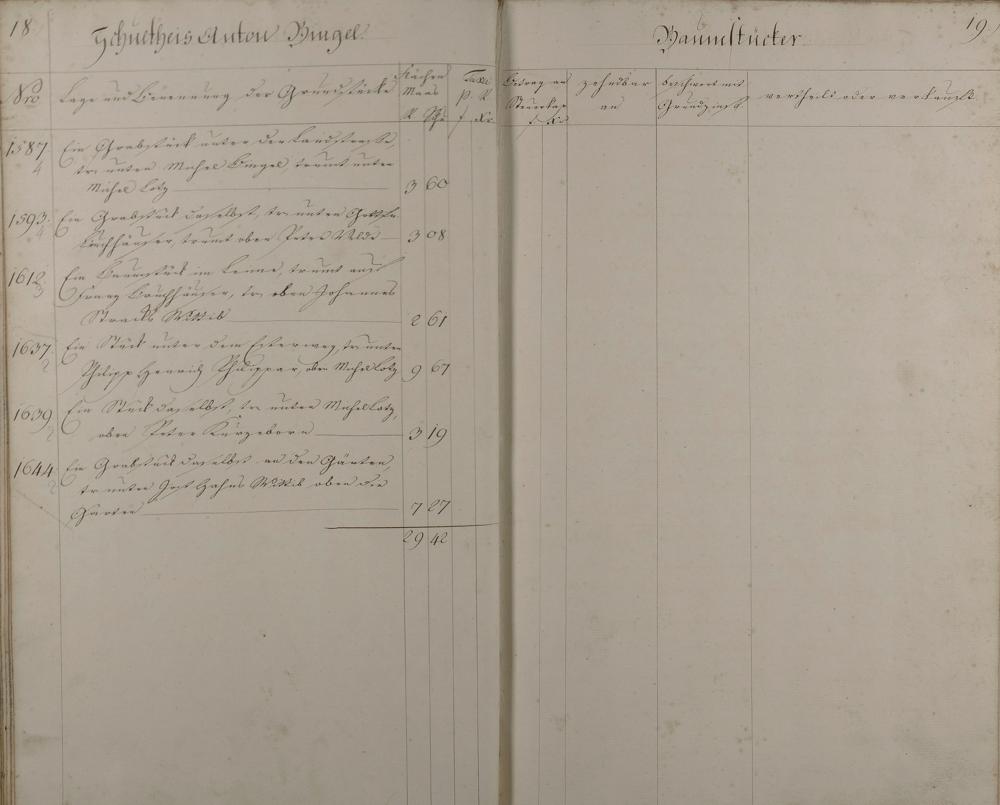 18
Schultheis Anton Bingel
Baumstücker
19
Nro
Lage und Benennung der Grundstücke
Flächen
Maas
R. Sch
Taxe
p. R.
f xr
Betrag an
Steuerkap
f. xr
zehndbar
an
beschwert mit
Grundzinß
vertheilt oder verkauft
1587
4
Ein Grabstück unter der Landstrasse,
tr. unten Michel Bingel, trumt unten
Michel Lotz
3 60
1593
4
Ein Grabstück daselbst, tr. unten
Buchhäuser, trumt oben Peter
3 08
1612
3
Ein Baumstück im trumt auf
Franz Buchhäuser, tr. oben Johannes
Stracks Wittib
2 61
1637
2
Ein Stück unter dem tr. unten
Philipp Henrich Philippar, oben Michel Lotz
9 67
1639
2
Ein Stück daselbst, tr. unten Michel Lotz,
oben Peter Kürzeborn
3 19
1644
2
Ein Grabstück daselbst an den Gärten,
tr. unten Jost Hahns Wittib oben die
Gärten
7 27
29 42